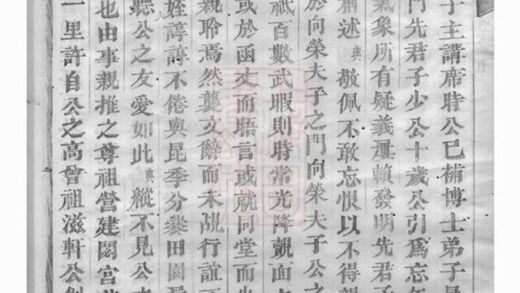 子主講席時公已補博士弟子員
門先君子少公十歲公引爲忘年
氣象所有疑義運賴發明先君子
稱述典敬佩不敢忘恨以不得親
於向榮夫子之門向榮夫子公之
祗百數武暇則時常光降覿面
或於函丈而晤言或就同堂而
親聆焉然襲文辭而未覘行誼
姪諄諄不倦與昆季分㸑田園
聽公之友愛如此典縱不見公
也由事親推之尊祖營建閟宮
一里許自公之高曾祖滋軒公